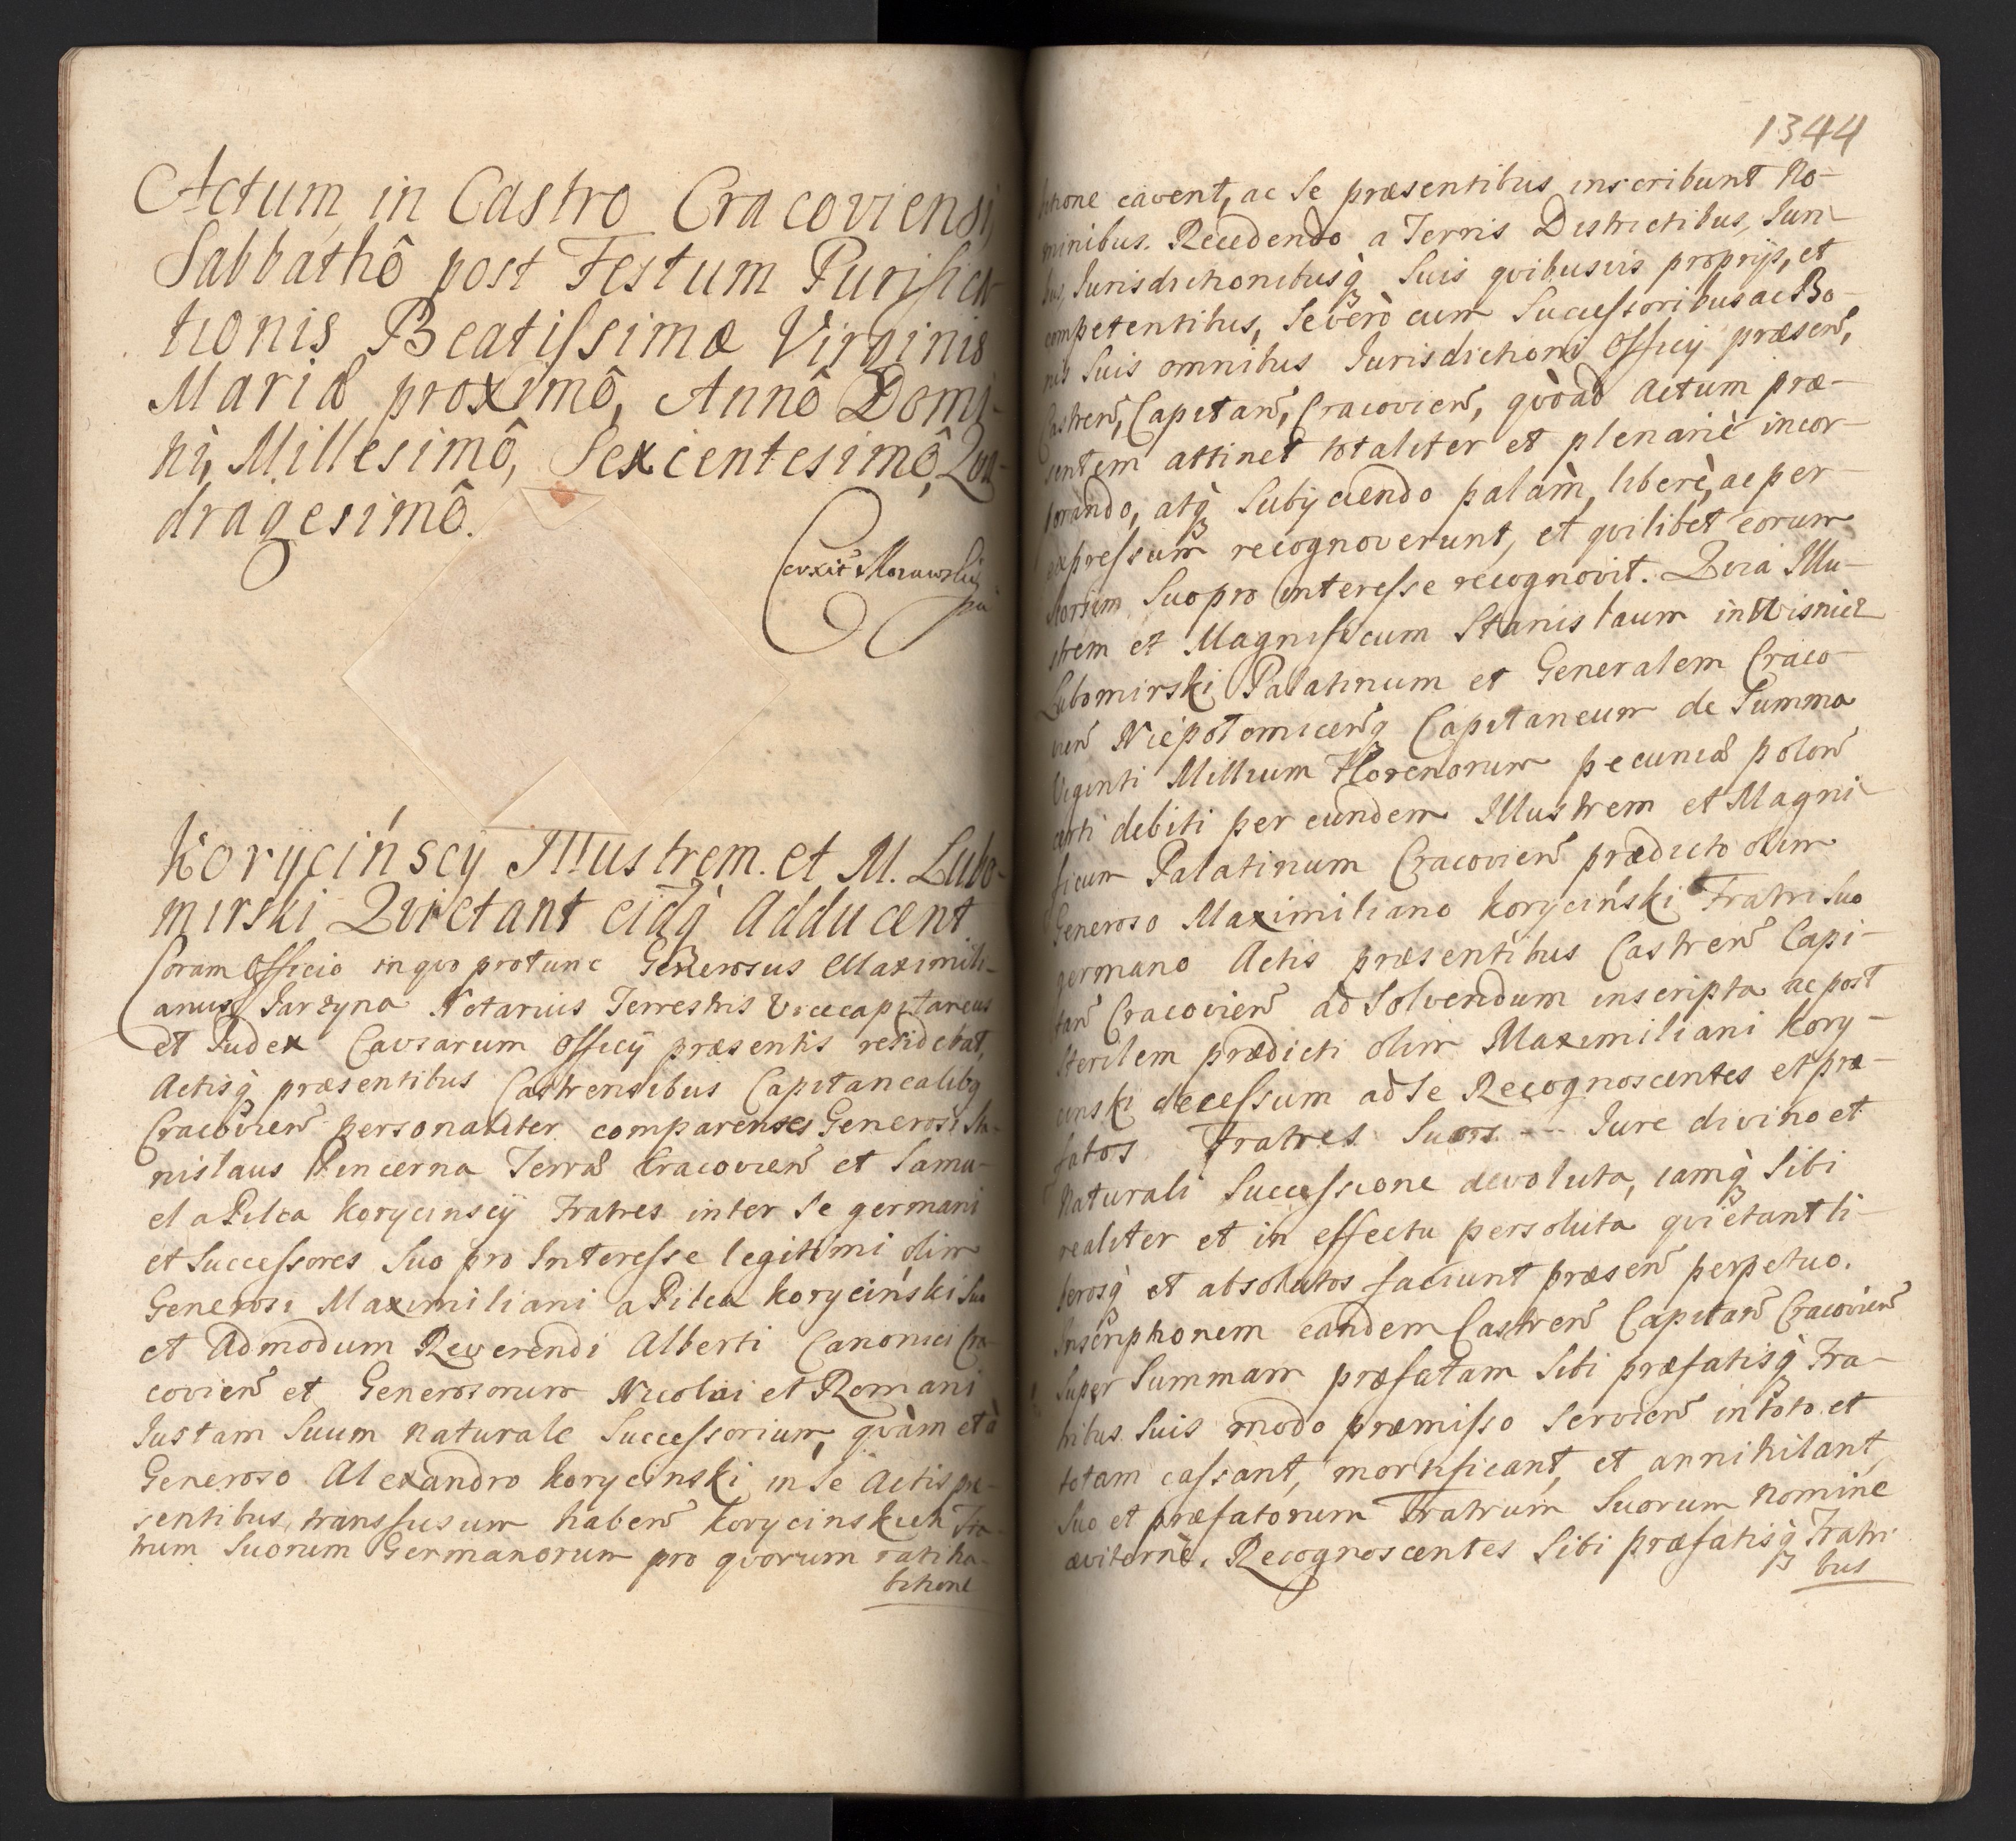 Actum in Castro Cracoviensi,
Sabbathô post Festum Purifica-
tionis Beatissimæ Virginis
Mariæ proximô, Annô Domi-
ni, Millesimô, Sexcentesimô, Qua-
dragesimô.
Korycińscy Illustrem. et M. Lubo-
mirski Quietant eidq́ Adducent
Coram Officio in quo protunc Generosus Maximili-
anus Jarzyna Notarius Terrestris Vicecapitaneus
et Judex Causarum Officij præsentis residebat,
Actisq́ præsentibus Castrensibus Capitanealibq
Cracovien̄ personaliter comparentes Generosi Sta-
nislaus Pincerna Terræ Cracovien̄ et Samu-
el a Pilca Korycinscÿ Fratres inter Se germani
et Successores Suo pro Interesse legitimi olim
Generosi Maximiliani a Pilca Koryciński Suo
et Admodum Reverendi Alberti Canonici Cra-
covien̄ et Generosorum Nicolai et Romani
Justam Suum naturale Successorium, quàm et à
Generoso Alexandro Korycinski in Se Actis præ-
sentibus, transfusum haben̄ Korycinskich Fra-
trum Suorum Germanorum pro quorum ratiha-
bitione
1344
bitione cavent, ac Se præsentibus inscribunt No-
minibus. Recedendo a Terris Districtibus, Juri-
bus, Jurisdictionibusq́ Suis quibusvis proprijs, et
competentibus, Se verò cum Successoribus ac Bo-
nis Suis omnibus Jurisdictioni Officij præsen̄,
Castren̄, Capitan̄, Cracovien̄, quòad Actum præ-
sentem attinet totaliter et plenariè incor-
porando, atq́ Subijciendo palàm, liberè, ac per
expressum recognoverunt, et quilibet eorum
seorsim Suo pro interesse recognovit. Quia Illu-
strem et Magnificum Stanislaum in Wisnicz
Lubomirski Palatinum et Generalem Craco-
vien̄ Niepotomicen̄q Capitaneum de Summa
Viginti Millium Florenorum pecuniæ polon̄
certi debiti per eundem Illustrem et Magni-
ficum Palatinum Cracovien̄ prædicto olim
Generoso Maximiliano Koryciński Fratri Suo
germano Actis præsentibus Castren̄ Capi-
tan̄ Cracovien̄ ad Solvendum inscripta ac post
sterilem prædicti olim Maximiliani Kory-
cinski decessum ad Se Recognoscentes et præ-
fatos Fratres Suos Jure divino et
Naturali Successione devoluta, iamq́ Sibi
realiter et in effectu persoluta quietant li-
berosq́ et absolutos faciunt præsen̄ perpetuo.
Inscriptionem eandem Castren̄ Capitan̄ Cracovien̄
Super Summam præfatam Sibi præfatisq́ Fra-
tribus Suis modo præmisso Servien̄ in toto et
totam cassant, mortificant, et annihilant,
Suo et præfatorum Fratrum Suorum nomine
æviternè. Recognoscentes Sibi præfatisq́ Fratri
bus